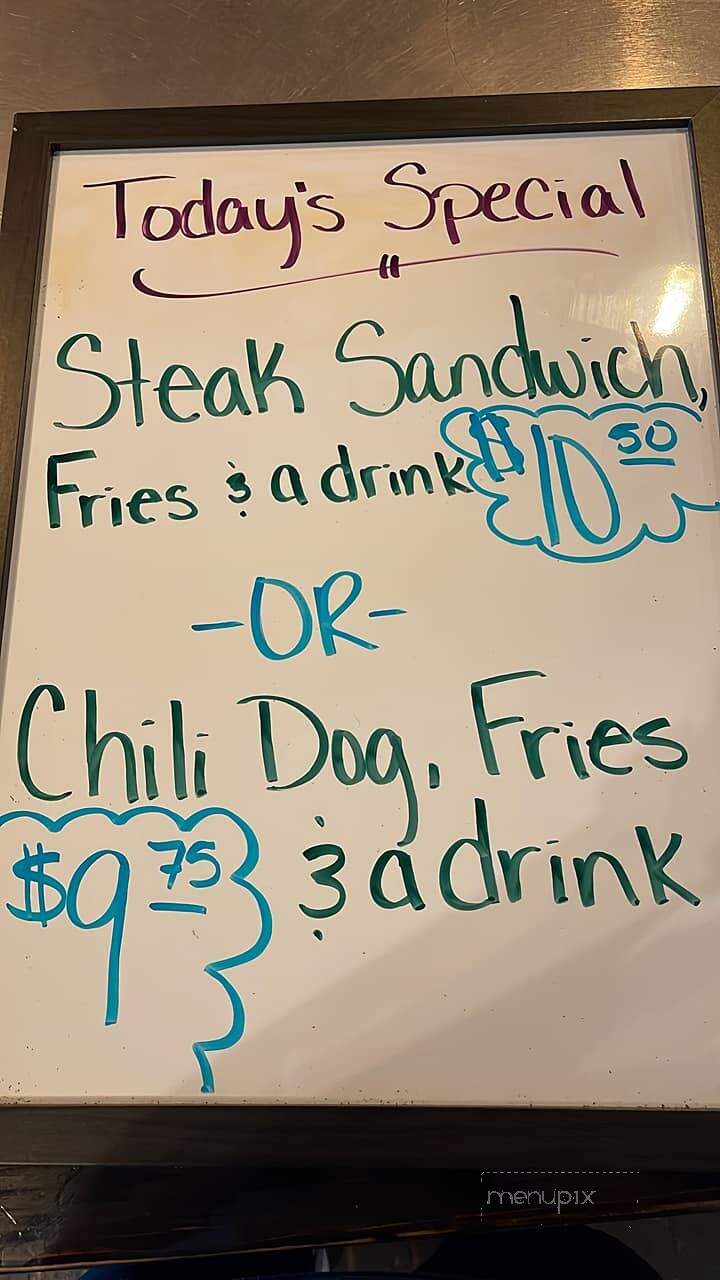 Today's Special
Steak Sandwich,
Fries & a drink $10 50
-OR-
Chili Dog, Fries
$9 75 & a drink
menupix